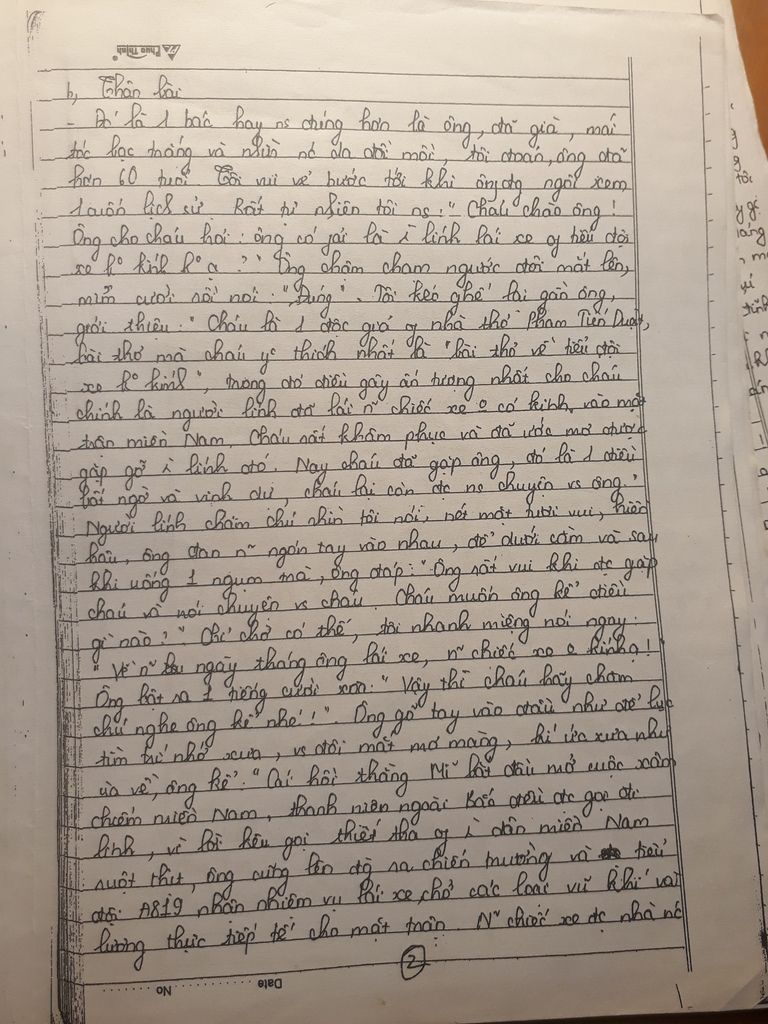 Phúc Thịnh
b, Thân bài
- Đó là 1 bác hay ns đúng hơn là ông, đã già, mái
tóc bạc trắng và nhìn nó da đồi mồi, tôi đoán, ông đã
hơn 60 tuổi. Tôi vui vẻ bước tới khi ông đg ngồi xem
1 cuốn lịch sử. Rất tự nhiên tôi ns: " Cháu chào ông!
Ông cho cháu hỏi: ông có fải là lính lái xe của tiểu đội
xe ko kính ko ạ?" Ông chăm cham ngước đôi mắt lên,
mỉm cười rồi nói: "Đúng". Tôi kéo ghế lại gần ông,
giới thiệu: " Cháu là 1 độc giả nhà thơ Phạm Tiến Duật,
bài thơ mà cháu yc thích nhất là "bài thơ về tiểu đội
xe ko kính", trong đó điều gây ấn tượng nhất cho cháu
chính là người lính đã lái n~ chiếc xe o có kính vào mặt
trận miền Nam. Cháu rất khâm phục và đã ước mơ được
gặp gỡ lính đó. Nay cháu đã gặp ông, đó là 1 điều
bất ngờ và vinh dự, cháu lại còn đc ns chuyện vs ông."
Người lính chăm chú nhìn tôi nói, nét mặt tươi vui, hiền
hậu, ông đan n~ ngón tay vào nhau, để dưới cằm và sau
khi uống 1 ngụm trà, ông đáp: " Ông rất vui khi đc gặp
cháu và nói chuyện vs cháu. Cháu muốn ông kể điều
gì nào?" Chỉ chờ có thế, tôi nhanh miệng nói ngay:
" Về n~ ngày tháng ông lái xe, n~ chiếc xe o kính ạ!
Ông bật ra 1 tiếng cười xoà: " Vậy thì cháu hãy chăm
chú nghe ông kể nhé!". Ông gõ tay vào đầu như để lục
tìm trí nhớ xưa, vs đôi mắt mơ màng, kí ức xưa như
ùa về, ông kể: " Cái hồi thằng Mĩ bắt đầu mở cuộc xâm
chiếm miền Nam, thanh niên ngoài Bắc đều đc gọi đi
lính, vì lời kêu gọi thiết tha dân miền Nam
ruột thịt, ông cũng lên đg ra chiến trường và tiểu
đội A819 nhận nhiệm vụ lái xe, chở các loại vũ khí và
lương thực tiếp tế cho mặt trận. N~ chiếc xe đc nhà nc
2
Date No